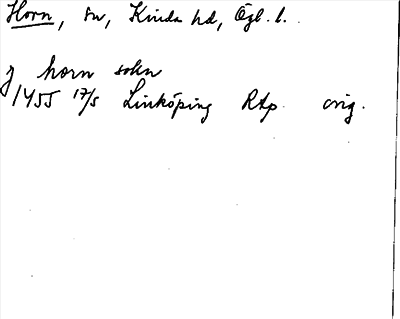 Horn, sn, Kinda hd, Ögl. l.
J horn sokn
1455 17/5 Linköping RAp. orig.